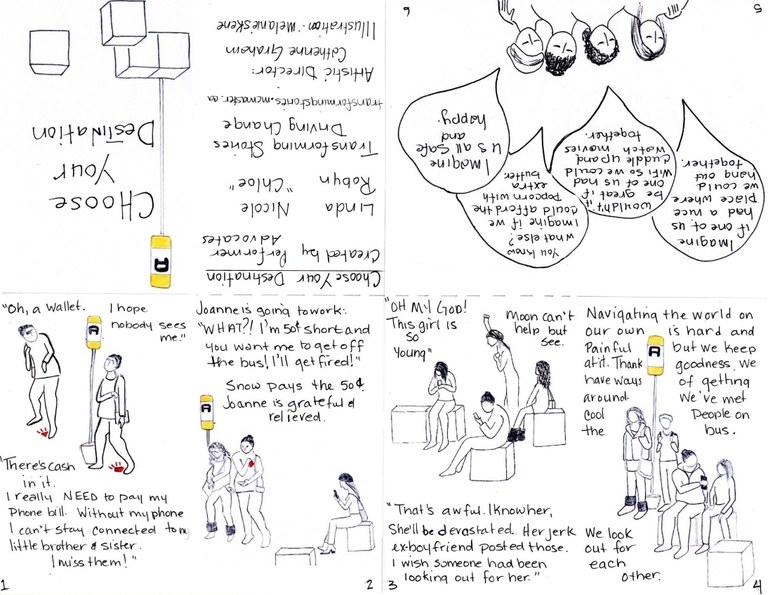 CHOOSE
YOUR
DESTINATION
Choose Your Destination
Created by Performer
Advocates
Linda Nicole
Robyn "Chloe"
Transforming Stories
Driving Change
transformingstories.mcmaster.ca
Artistic Director:
Catherine Graham
Illustration: Melanie Skene
"Oh, a wallet.
I hope
nobody sees
me."
"There's cash
in it.
I really NEED to pay my
phone bill. Without my phone
I can't stay connected to my
little brother & sister.
I miss them!"
1
Joanne is going to work:
"WHAT?! I'm 50¢ short and
you want me to get off
the bus! I'll get fired!"
Snow pays the 50¢
Joanne is grateful &
relieved.
2
"OH MY GOD!
This girl is
so
young"
Moon can't
help but
see.
"That's awful. I know her,
She'll be devastated. Her jerk
ex-boyfriend posted those.
I wish someone had been
looking out for her."
3
Navigating the world on
our own is hard and
painful but we keep
at it. Thank goodness we
have ways of getting
around We've met
cool people on
the bus.
We look
out for
each
other.
4
Imagine
if one of us
had a nice
place where
we could
hang out
together.
Wouldn't it
be great if
one of us had
WiFi so we could
cuddle up and
watch movies
together.
5
You know
what else?
Imagine if we
could afford the
popcorn with
extra
butter.
Imagine
us all safe
and
happy.
6